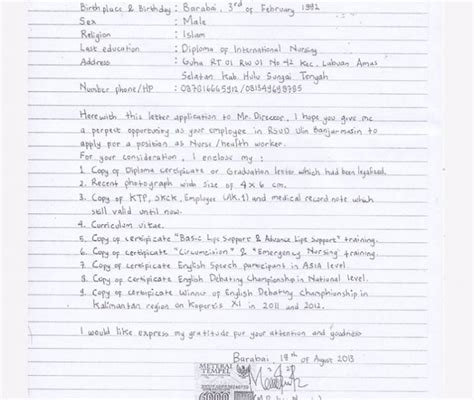 Birthplace & Birthday : Barabai, 3rd of February 1992
Sex : Male
Religion : Islam
Last education : Diploma of International Nursing
Address : Guha RT 01 RW 01 No 42 Kec. Labuan Amas
Selatan Kab. Hulu Sungai Tengah
Number phone/HP : 087816665912 / 081349698785
Herewith this letter application to Mr. Director, I hope you give me
a perfect opportunity as your employee in RSUD Ulin Banjarmasin to
apply for a position as Nurse / health worker.
For your consideration, I enclose my :
1. Copy of Diploma certificate or Graduation letter which had been legalised.
2. Recent photograph with size of 4 x 6 cm.
3. Copy of KTP, SKCK, Employee (AK.1) and medical record note which
still valid until now.
4. Curriculum vitae.
5. Copy of certificate "Basic Life Support & Advance Life Support" training.
6. Copy of certificate "Circumcision" & "Emergency Nursing" training.
7. Copy of certificate English Speech participant in ASIA level.
8. Copy of certificate English Debating Championship in National level.
9. Copy of certificate Winner of English Debating Champhionship in
Kalimantan region on Kopertis XI in 2011 and 2012.
I would like express my gratitude for your attention and goodness
Barabai, 18th of August 2013
METERAI
TEMPEL